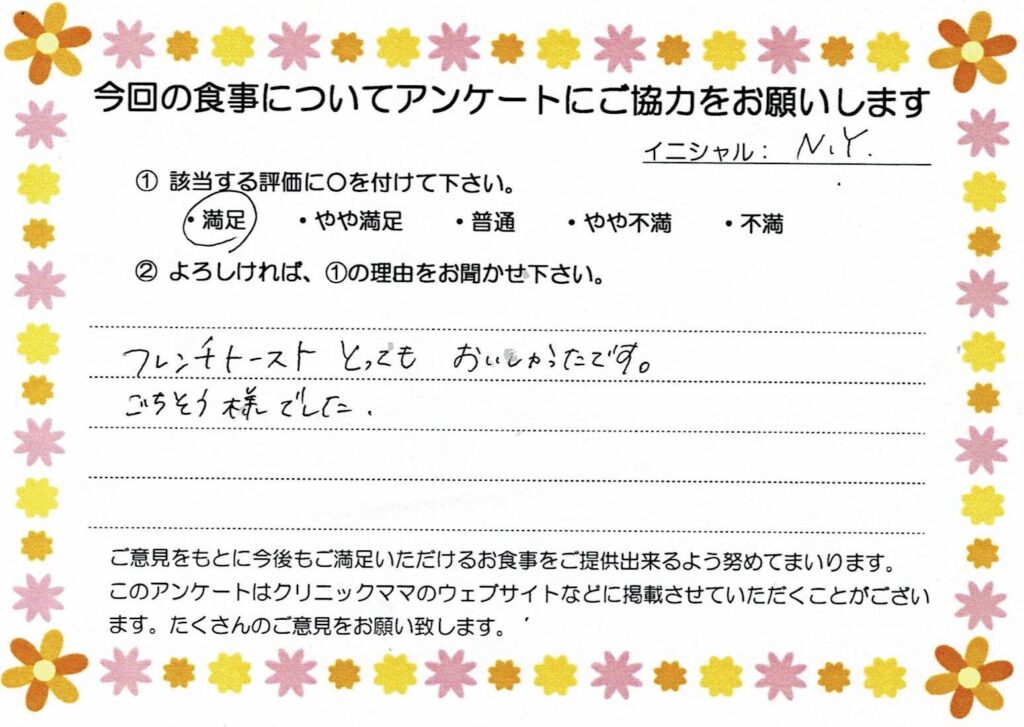 今回の食事についてアンケートにご協力をお願いします
イニシャル： N.Y.
① 該当する評価に○を付けて下さい。
・満足 ・やや満足 ・普通 ・やや不満 ・不満
② よろしければ、①の理由をお聞かせ下さい。
フレンチトースト とっても おいしかったです。
ごちそう様でした.
ご意見をもとに今後もご満足いただけるお食事をご提供出来るよう努めてまいります。
このアンケートはクリニックママのウェブサイトなどに掲載させていただくことがござい
ます。たくさんのご意見をお願い致します。